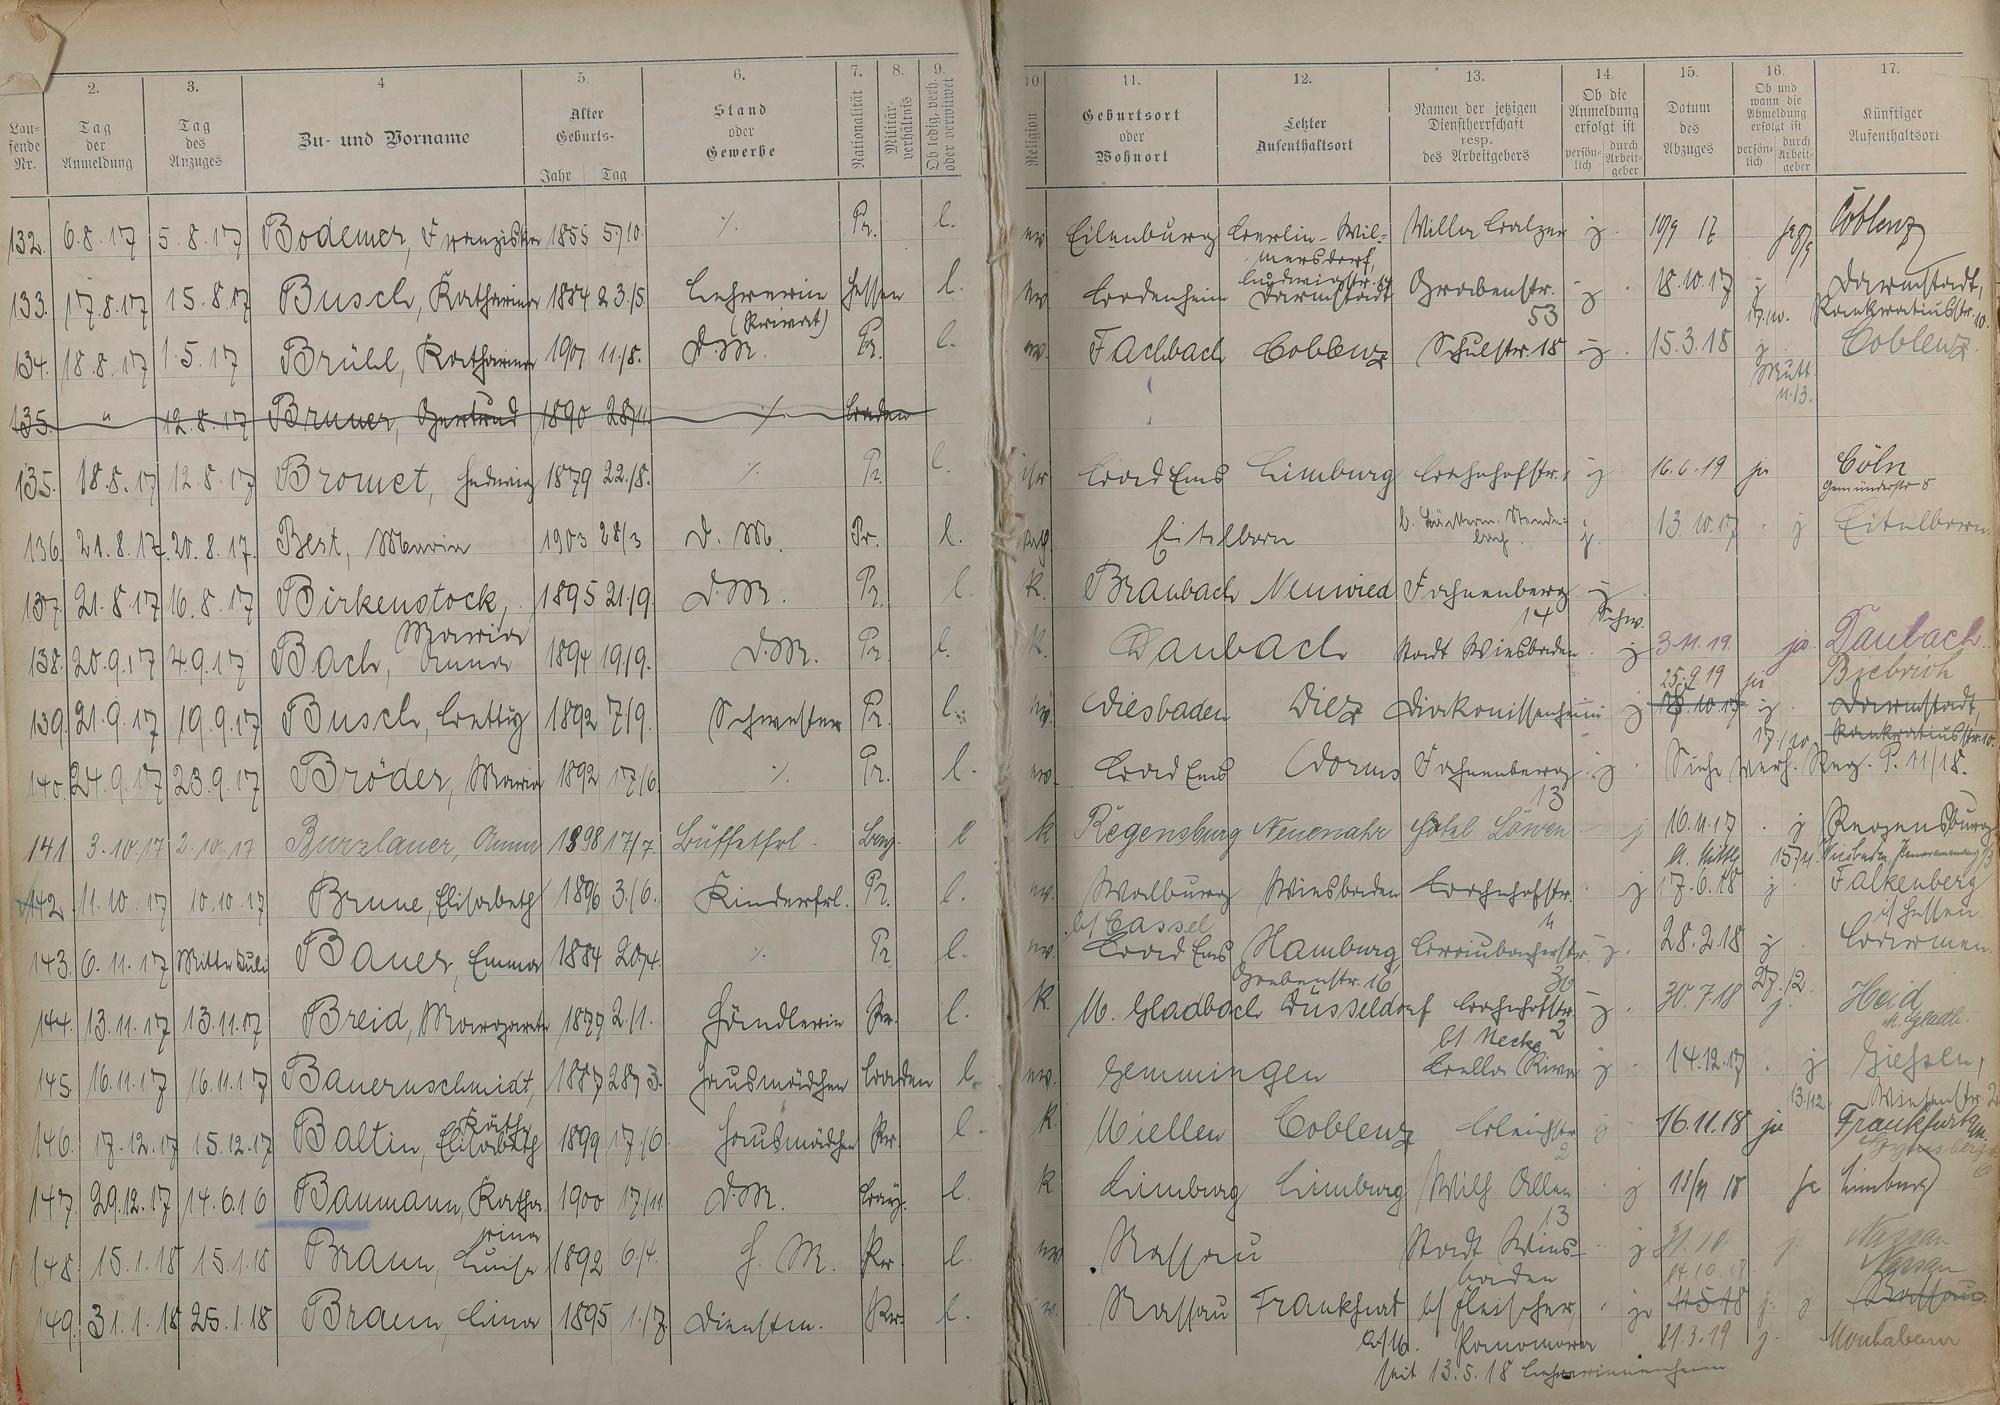 2. 3. 4 5. 6. 7. 8. 9. 10 11. 12. 13. 14. 15. 16. 17.
Lau-
fende
Nr.
Tag
der
Anmeldung
Tag
des
Anzuges
Zu- und Vorname
Alter
Geburts-
Jahr Tag
Stand
oder
Gewerbe
Nationalität
Militär-
verhältnis
Ob ledig, verh.
oder verwitwet
Religion
Geburtsort
oder
Wohnort
Letzter
Aufenthaltsort
Namen der jetzigen
Dienstherrschaft
resp.
des Arbeitgebers
Ob die
Anmeldung
erfolgt ist
persön-
lich
durch
Arbeit-
geber
Datum
des
Abzuges
Ob und
wann die
Abmeldung
erfolgt ist
persön-
lich
durch
Arbeit-
geber
Künftiger
Aufenthaltsort
132. 6.8.17 5.8.17 Bodemer, Franziska 1855 5/10. ٪ Pr. l. ev Eilenburg Berlin-Wil- Villa Balzer j. 10/9 17 Coblenz
mersdorf,
Ludwigstr. 54
133. 17.8.17 15.8.17 Busch, Katharina 1884 23./5. Lehrerin Hessen l. ev. Bodenheim Darmstadt Grabenstr. j. 18.10.17 j Darmstadt,
(Privat) 53 17./10. Pankratiusstr. 10.
134. 18.8.17 1.5.17 Brühl, Katharina 1901 11./8. D.M. Pr. l. ev. Fachbach Coblenz Schulstr. 18 j. 15.3.18 j Coblenz.
Mutt.
11./3.
135. " 12.8.17 Bruner, Gertrud 1890 28/11. ٪ Baden
135. 18.8.17 12.8.17 Bromet, Hedwig 1879 22./8. ٪ Pr. l. isr Bad Ems Limburg Bahnhofstr. 1 j 16.6.19 ja Cöln
Gemünderstr 8
136. 21.8.17. 20.8.17. Best, Maria 1903 28/3 D. M. Pr. l. kath Eitelborn j. 13.10.17 . j Eitelborn.
137. 21.8.17 16.8.17 Birkenstock, 1895 21./9. D.M. Pr. l. k. Braubach Neuwied Fachnenberg j
Maria 14 Schw.
138. 20.9.17 4.9.17 Bach, Anna 1894 19/9. D.M. Pr. l. k. Daubach Stadt Wiesbaden. j 3.11.19. ja. Daubach.
25.9.19 ja Biebrich
139. 21.9.17 19.9.17 Busch, Bettiy 1892 7/9. Schwester Pr. l. ev. Wiesbaden Diez Diakonissenheim j 18.10.17 j. Darmstadt,
17./10. Pankratiusstr. 10.
140. 24.9.17 23.9.17 Bröder, Maria 1892 17/6 ٪ Pr. l. ev. Bad Ems Worms Fachnenberg j. Siehe Verh. Reg. P. 11/18.
13
141 3.10.17 2.10.17 Burzlauer, Anna 1898 17/7. Büffetfrl. Bay. l k Regensburg Neuenahr Hotel Löwen j 16.11.17 . j Regensburg
15/11.
142 11.10.17 10.10.17 Brune, Elisabeth 1896 3./6. Kinderfrl. Pr. l. ev. Walburg Wiesbaden Bahnhofstr. j 17.6.18 j. Falkenberg
b/ Cassel 4 i/ Hessen.
143. 6.11.17 Mitte Juli Bauer, Emma 1884 20/4. ٪ Pr. l. ev. Bad Ems Hamburg, Braubacherstr. j. 28.2.18 j. Barmen.
Grabenstr. 16 30 27./2.
144. 13.11.17 13.11.17 Breid, Margarete 1879 2/1. Händlerin Pr. l. k. M. Gladbach Düsseldorf Bahnhofstr. j. 30.7.18 j. Heid
2 M. Gladb.
b/ Necke
145. 16.11.17 16.11.17 Bauernschmidt, 1887 28/3. Hausmädchen Baden l. ev. Gemmingen Bella Riva j. 14.12.17 . j Giessen,
Käthe 13./12. Wiesenstr. 2
146. 17.12.17 15.12.17 Baltin, Elisabeth 1899 17/6 Hausmädchen Pr. l. k. Miellen Coblenz Bleichstr. j. 16.11.18 ja Frankfurt a/M.
2
147. 29.12.17 14.6.16 Baumann, Katha- 1900 17/11. D.M. Bay. l. k. Limburg Limburg Wilh. Allee j 13/11 18 ja Limburg
rina 13
148. 15.1.18 15.1.18 Braun, Luise 1892 6/4. H. M. Pr l. ev Nassau Stadt Wies- j 31.10. j. Nassau
baden 14.10.18. Nassau
149. 31.1.18 25.1.18 Braun, Lina 1895 1./7. Dienstm. Pr. l. ev. Nassau Frankfurt b/ Fleischer, ja 11.5.18 j. j Nassau.
a/M. Panorama 11.3.19 j. Montabaur
seit 13.5.18 Lehrerinnenheim